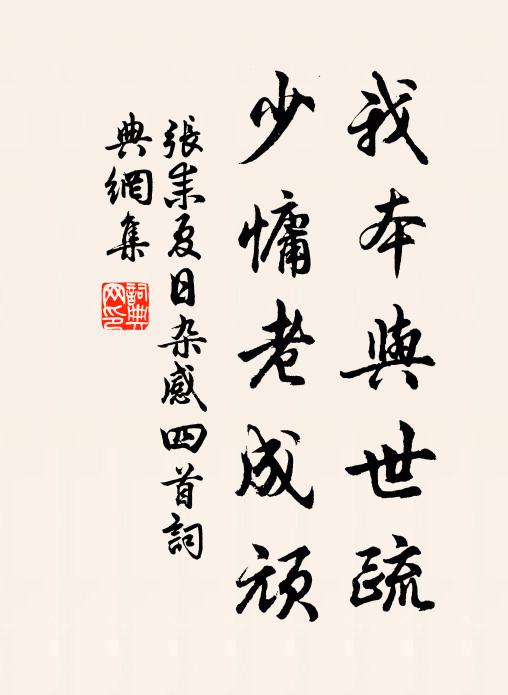 我本與世疏
少慵老成頑
張耒夏日杂感四首詞
典網集
詞典网印